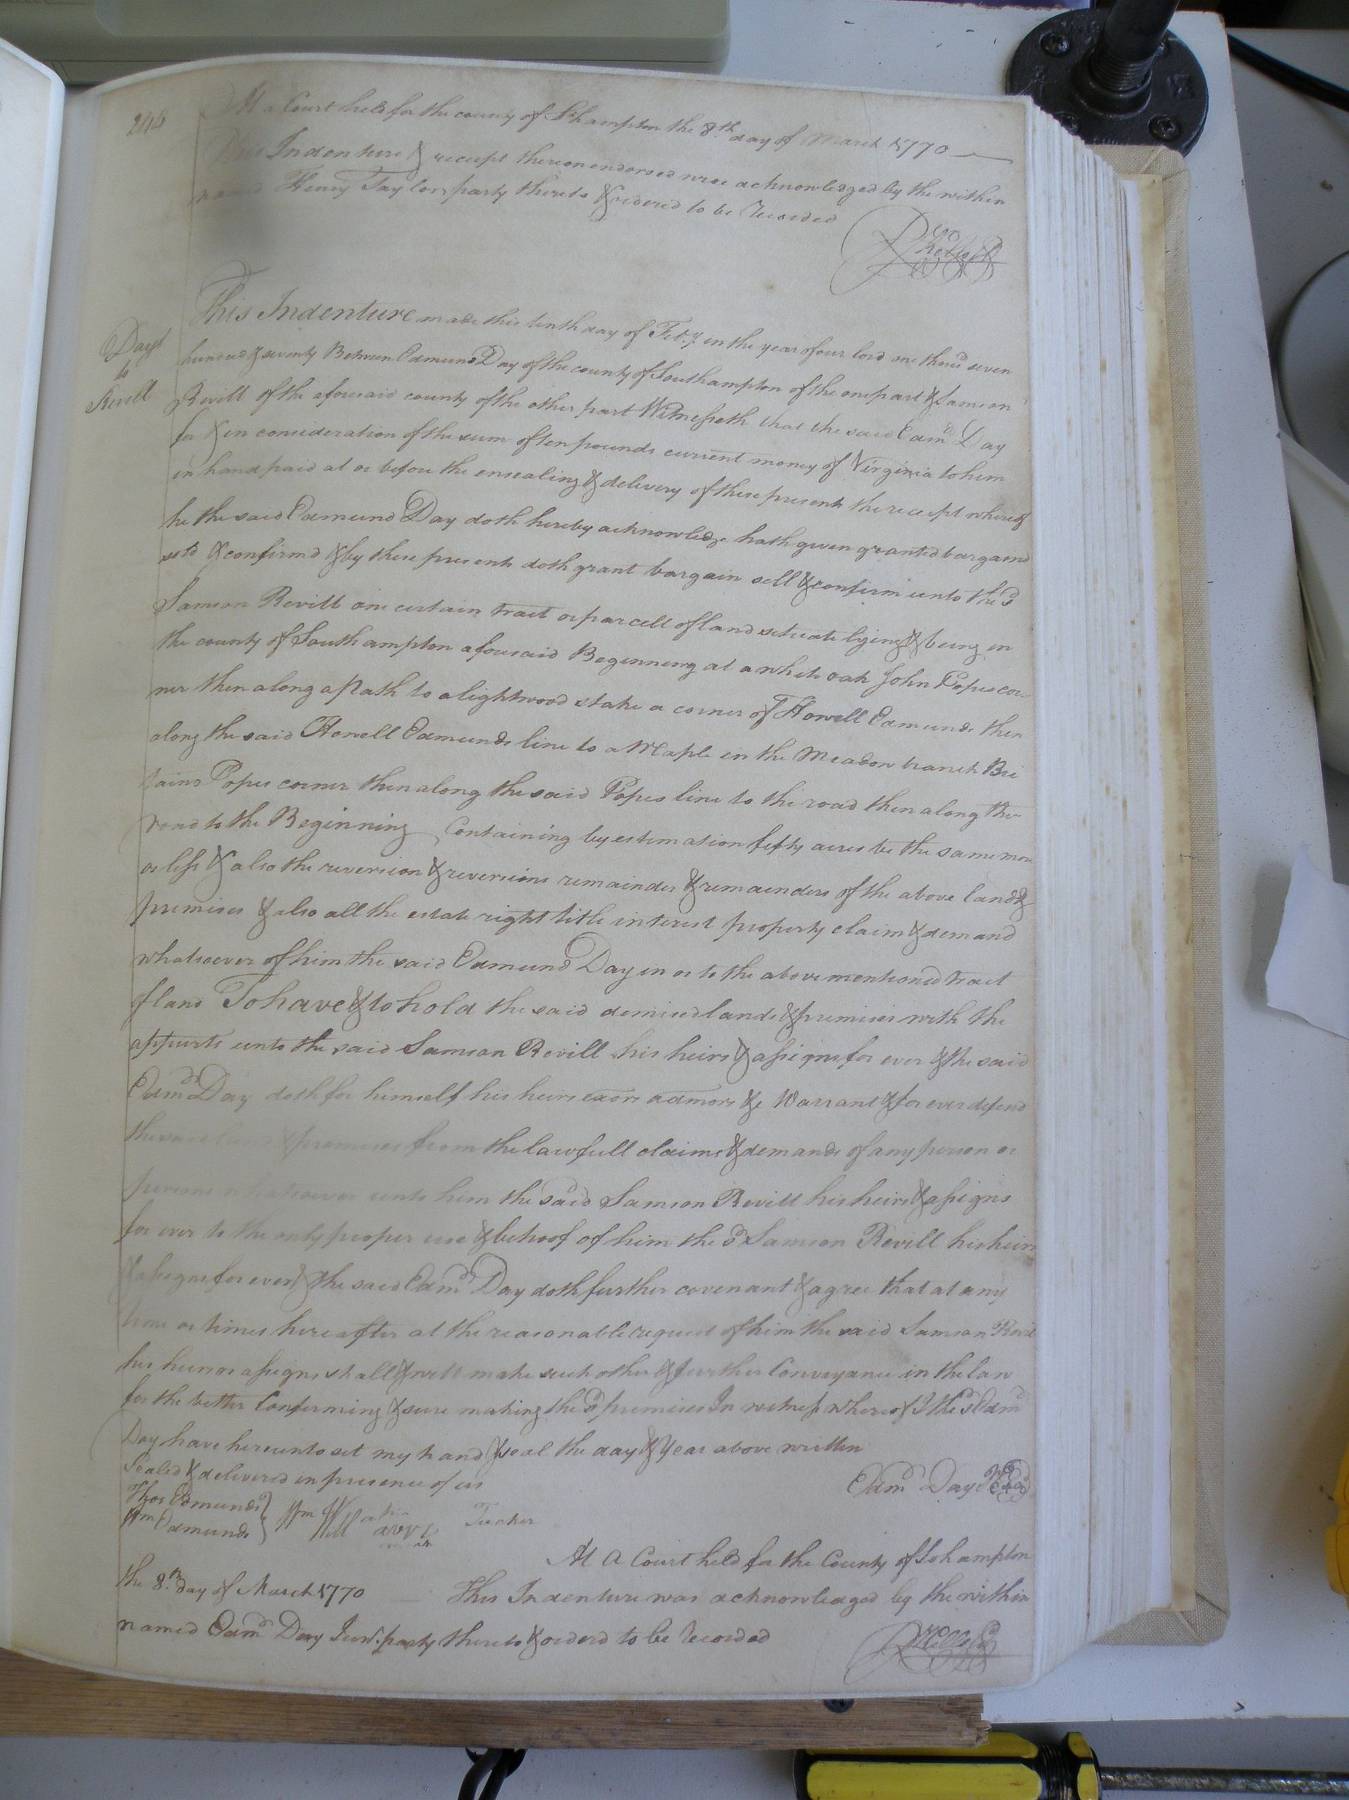 246
At a Court held for the county of Sohampton the 8th day of March 1770
This Indenture & receipt thereon endorsed were acknowledged by the within
named Henry Taylor party thereto & ordered to be Recorded
Day
to
Revell
This Indenture made this tenth day of Feby in the year of our lord one thousd seven
hundred & seventy Between Edmund Day of the county of Southampton of the one part & Samson
Revill of the aforesaid county of the other part Witnesseth that the said Edmd Day
for & in consideration of the sum of ten pounds current money of Virginia to him
in hand paid at or before the ensealing & delivery of these presents the receipt whereof
he the said Edmund Day doth hereby acknowledge hath given granted bargaind
sold & confirmd & by these presents doth grant bargain sell & confirm unto the sd
Samson Revill one certain tract or parcell of land situate lying & being in
the county of Southampton aforesaid Beginning at a white oak John Popes cor
ner then along a Path to a lightwood stake a corner of Howell Edmunds then
along the said Howell Edmunds line to a Maple in the Meadow branch Bri
tains Popes corner then along the said Popes line to the road then along the
road to the Beginning Containing by estimation fifty acres be the same more
or less & also the reversion & reversions remainder & remainders of the above land &
premises & also all the estate right title interest property claim & demand
whatsoever of him the said Edmund Day in or to the above mentioned tract
of land To have & to hold the said demised lands & premises with the
appurts unto the said Samson Revill his heirs & assigns for ever & the said
Edmd Day doth for himself his heirs exors admors &c Warrant & for ever defend
the said land & premises from the lawfull claims & demands of any person or
persons whatsoever unto him the said Samson Revill his heirs & assigns
for ever to the only proper use & behoof of him the sd Samson Revill his heirs
& assigns for ever & the said Edmd Day doth further covenant & agree that at any
time or times hereafter at the reasonable request of him the said Samson Revil
his heirs or assigns shall & will make such other & further Conveyance in the law
for the better Confirming & sure making the sd premises In witness whereof I the sd Edmd
Day have hereunto set my hand & seal the day & Year above written
Sealed & delivered in presence of us
Edmd Day Seal
Thos Edmunds
Wm Edmunds
Wm Tucker
At a Court held for the County of Sohampton
the 8th day of March 1770 This Indenture was acknowledged by the within
named Edmd Day Junr party thereto & orderd to be Recorded